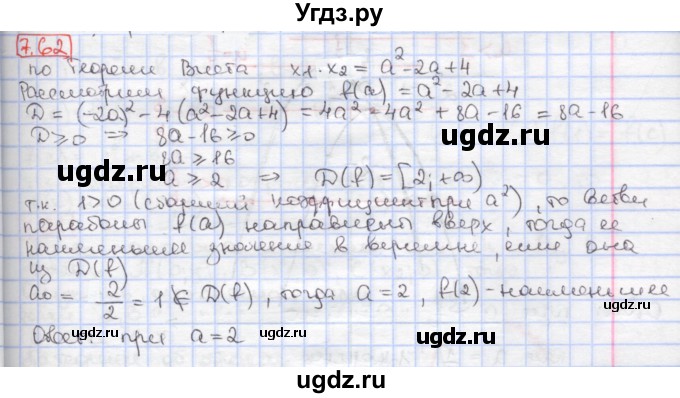 Угдз.ру
7.62
по теореми Виета x1·x2 = a²-2a+4
Рассмотрим функцию f(a) = a²-2a+4
D = (-2a)² - 4(a²-2a+4) = 4a² - 4a² + 8a - 16 = 8a - 16
D ≥ 0 ⇒ 8a - 16 ≥ 0
8a ≥ 16
a ≥ 2 ⇒ D(f) = [2; +∞)
т.к. 1>0 (старший коэффициент при a²), то ветви
параболы f(a) направлены вверх, тогда ее
наименьшее значение в вершине, если она
из D(f)
a₀ = 2/2 = 1 ∉ D(f), тогда a = 2, f(2) - наименьшее
Ответ: при a = 2
ugdz.ru
ugdz.ru
ugdz.ru
ugdz.ru
ugdz.ru
ugdz.ru
ugdz.ru
ugdz.ru
ugdz.ru
ugdz.ru
ugdz.ru
ugdz.ru